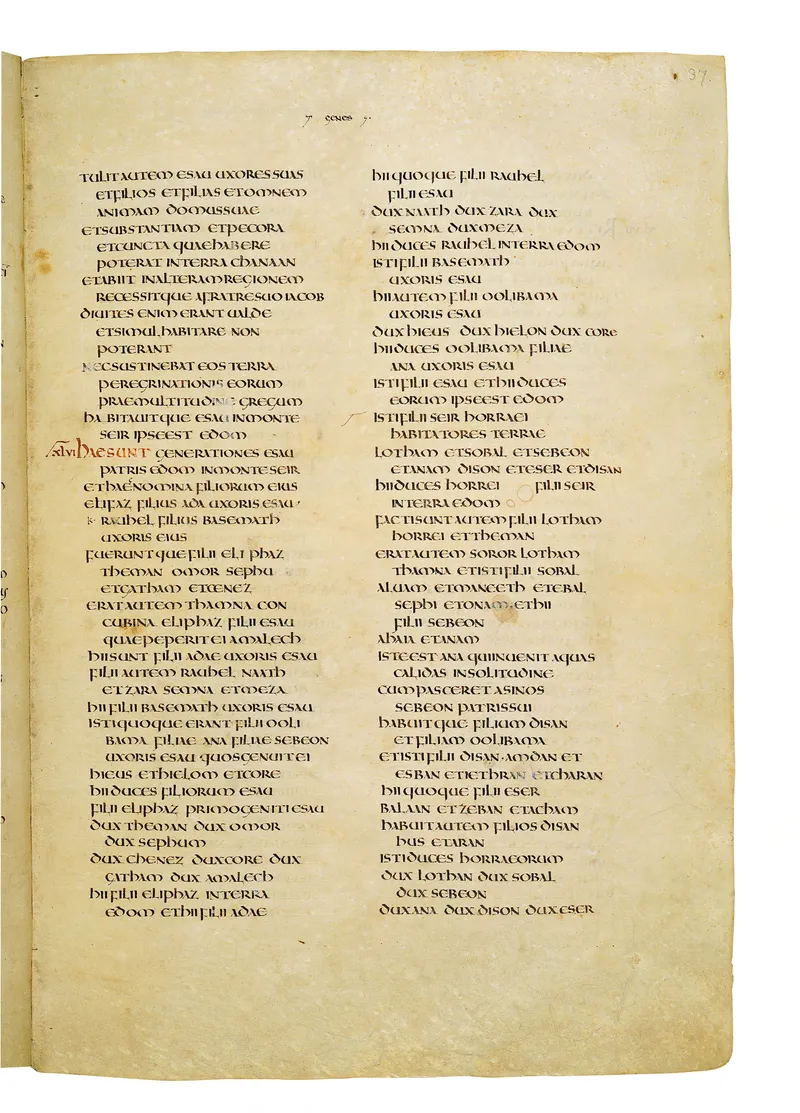 37.
GENES
TULIT AUTEM ESAU UXORES SUAS
ET FILIOS ET FILIAS ET OMNEM
ANIMAM DOMUS SUAE
ET SUBSTANTIAM ET PECORA
ET CUNCTA QUAE HABERE
POTERAT IN TERRA CHANAAN
ET ABIIT IN ALTERAM REGIONEM
RECESSITQUE A FRATRE SUO IACOB
DIUITES ENIM ERANT UALDE
ET SIMUL HABITARE NON
POTERANT
NEC SUSTINEBAT EOS TERRA
PEREGRINATIONIS EORUM
PRAE MULTITUDINE GREGUM
HABITAUITQUE ESAU IN MONTE
SEIR IPSE EST EDOM
XLVI HAE SUNT GENERATIONES ESAU
PATRIS EDOM IN MONTE SEIR
ET HAEC NOMINA FILIORUM EIUS
ELIFAZ FILIUS ADA UXORIS ESAU
RAUHEL FILIUS BASEMATH
UXORIS EIUS
FUERUNTQUE FILII ELIPHAZ
THEMAN OMOR SEPHU
ET GATHAM ET CENEZ
ERAT AUTEM THAMNA CON
CUBINA ELIPHAZ FILII ESAU
QUAE PEPERIT EI AMALECH
HII SUNT FILII ADAE UXORIS ESAU
FILII AUTEM RAUHEL NAATH
ET ZARA SEMNA ET MEZA
HII FILII BASEMATH UXORIS ESAU
ISTI QUOQUE ERANT FILII OOLI
BAMA FILIAE ANA FILIAE SEBEON
UXORIS ESAU QUOS GENUIT EI
HIEUS ET HIELOM ET CORE
HII DUCES FILIORUM ESAU
FILII ELIPHAZ PRIMOGENITI ESAU
DUX THEMAN DUX OMOR
DUX SEPHUM
DUX CHENEZ DUX CORE DUX
GATHAM DUX AMALECH
HII FILII ELIPHAZ IN TERRA
EDOM ET HII FILII ADAE
HII QUOQUE FILII RAUHEL
FILII ESAU
DUX NAATH DUX ZARA DUX
SEMNA DUX MEZA
HII DUCES RAUHEL IN TERRA EDOM
ISTI FILII BASEMATH
UXORIS ESAU
HII AUTEM FILII OOLIBAMA
UXORIS ESAU
DUX HIEUS DUX HIELON DUX CORE
HII DUCES OOLIBAMA FILIAE
ANA UXORIS ESAU
ISTI FILII ESAU ET HII DUCES
EORUM IPSE EST EDOM
ISTI FILII SEIR HORRAEI
HABITATORES TERRAE
LOTHAM ET SOBAL ET SEBEON
ET ANAM DISON ET ESER ET DISAN
HII DUCES HORREI FILII SEIR
IN TERRA EDOM
FACTI SUNT AUTEM FILII LOTHAM
HORREI ET THEMAN
ERAT AUTEM SOROR LOTHAM
THAMNA ET ISTI FILII SOBAL
ALUAM ET MANEETH ET EBAL
SEPHI ET ONAM ET HII
FILII SEBEON
AHAIA ET ANAM
ISTE EST ANA QUI INUENIT AQUAS
CALIDAS IN SOLITUDINE
CUM PASCERET ASINOS
SEBEON PATRIS SUI
HABUITQUE FILIUM DISAN
ET FILIAM OOLIBAMA
ET ISTI FILII DISAN AMDAN ET
ESBAN ET IETHRAN ET CHARAN
HII QUOQUE FILII ESER
BALAAN ET ZEBAN ET ACHAM
HABUIT AUTEM FILIOS DISAN
HUS ET ARAN
ISTI DUCES HORRAEORUM
DUX LOTHAN DUX SOBAL
DUX SEBEON
DUX ANA DUX DISON DUX ESER